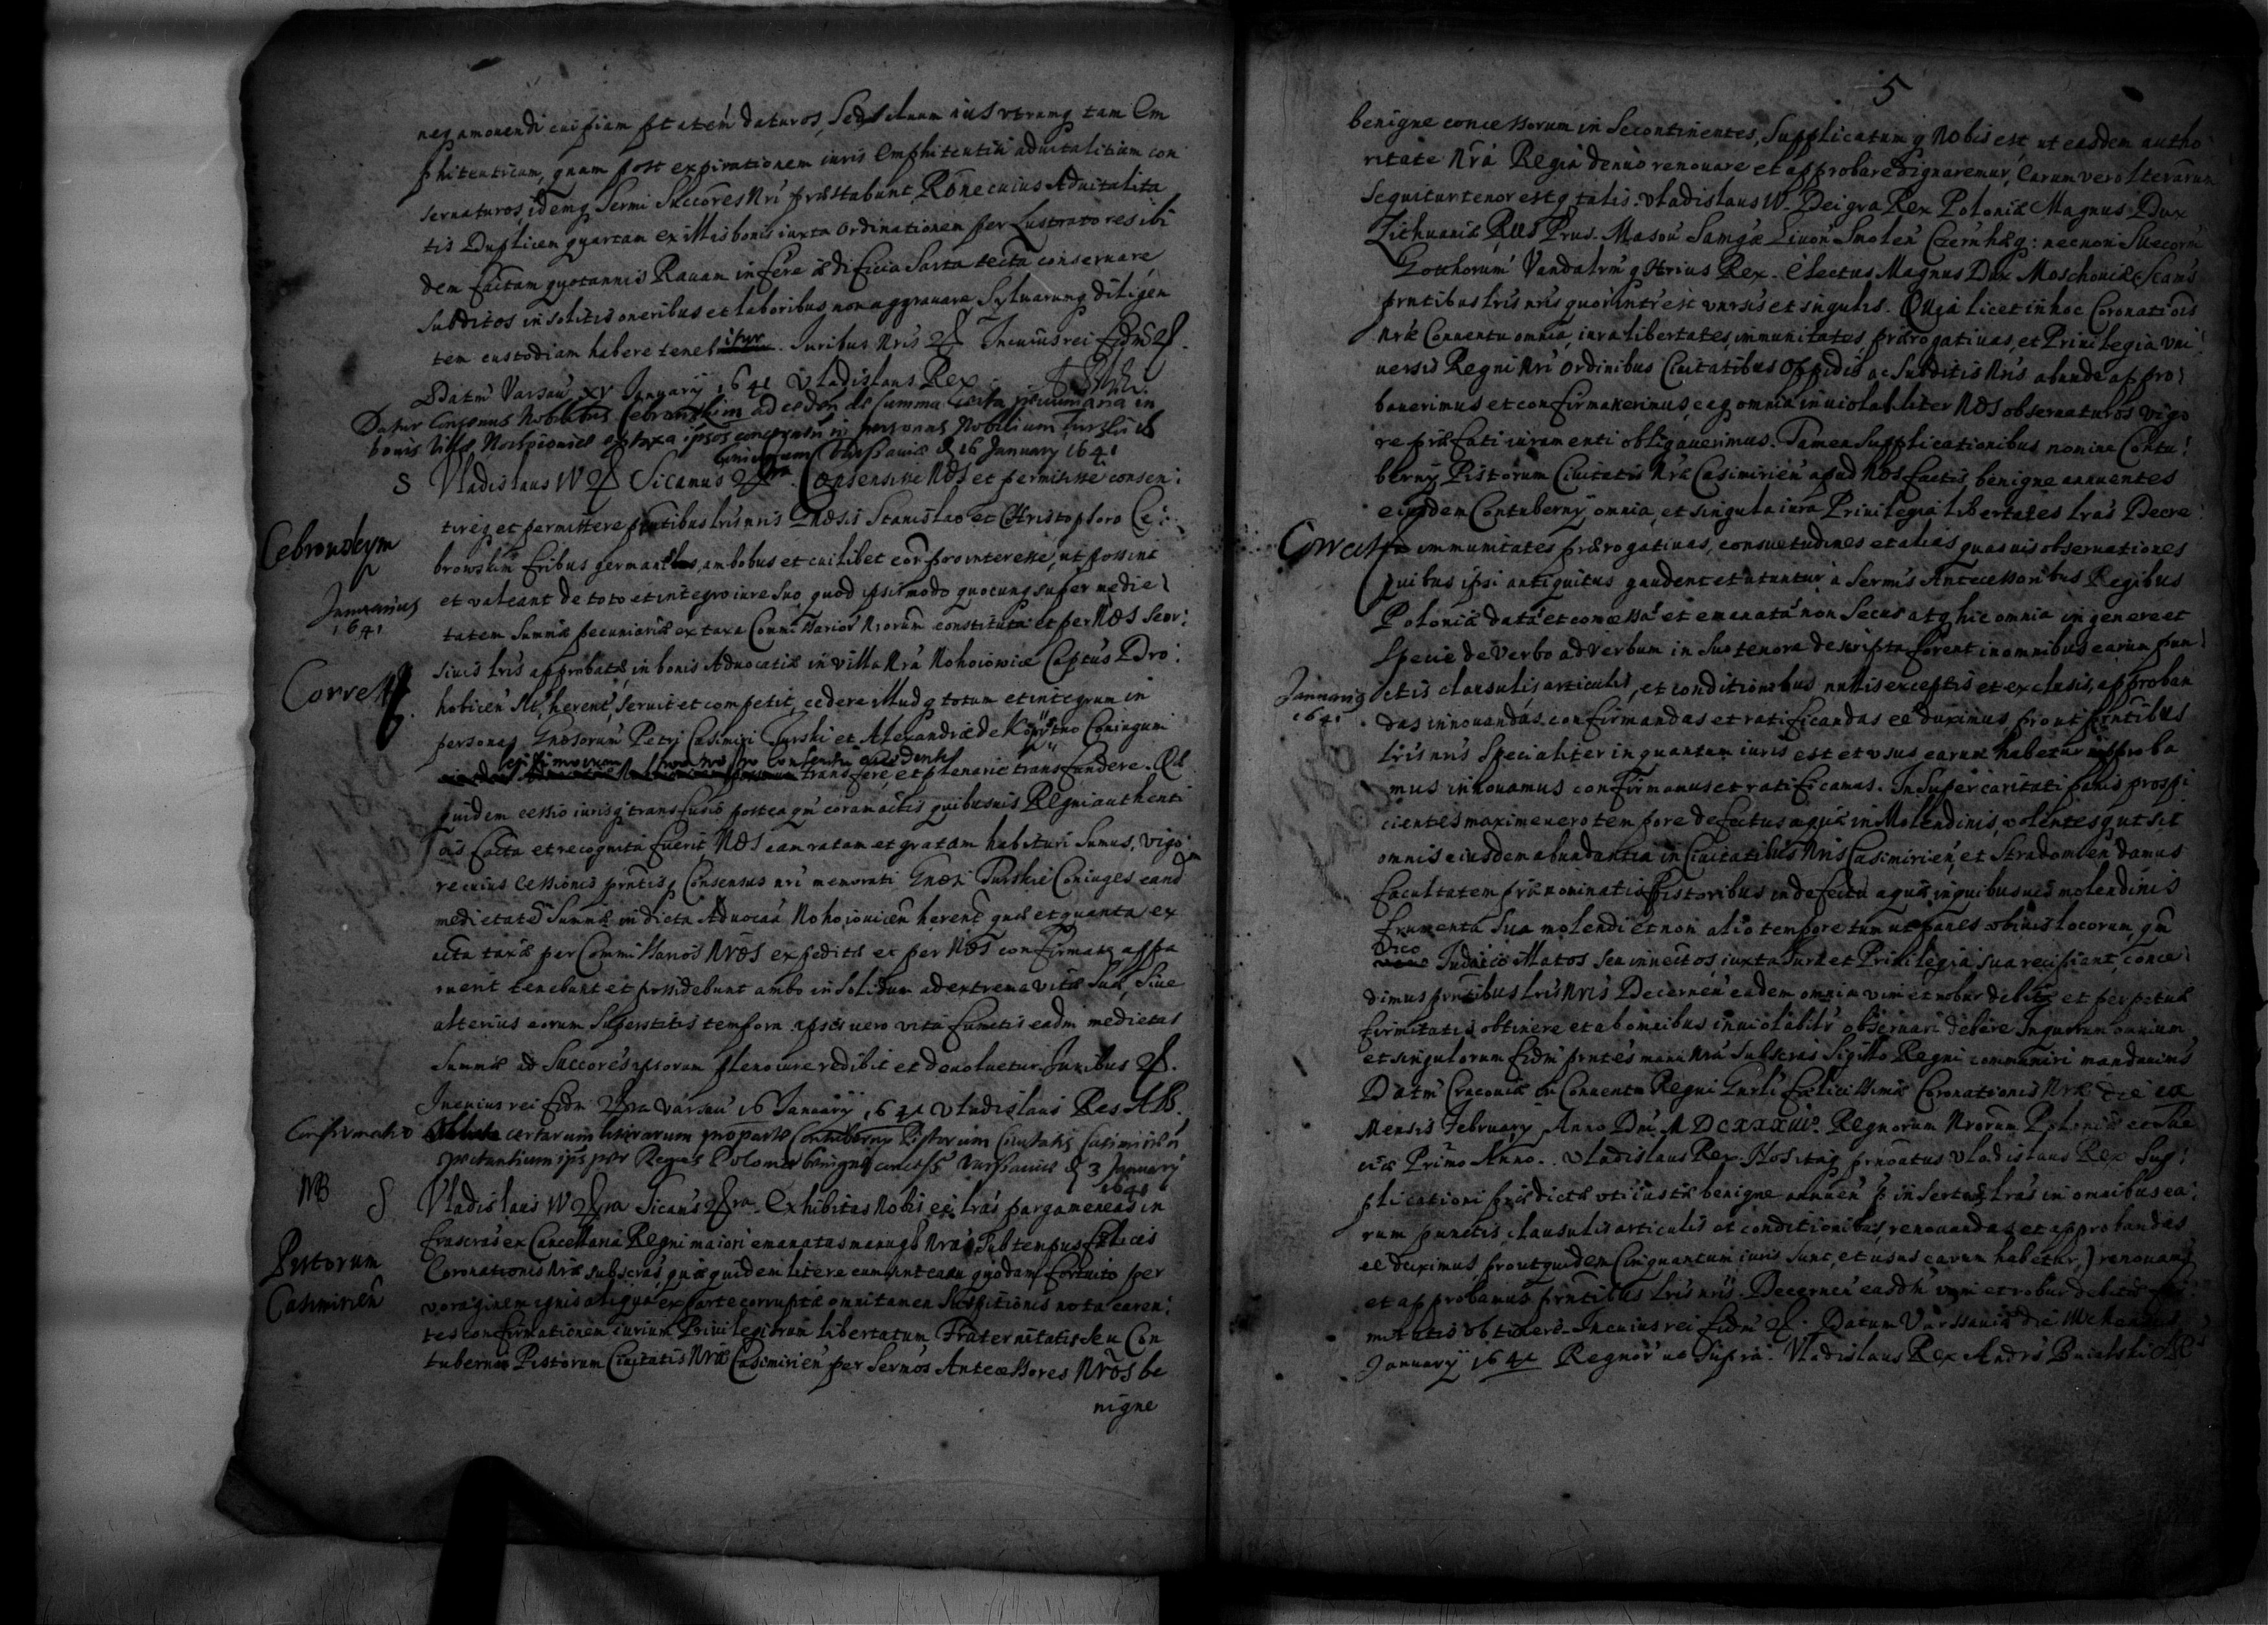 neq amouendi cuipiam ptatem daturos, Sed saluum ius vtrumq tam Em
phiteuticum, quam post expirationem iuris Emphiteutici aduitalitium con
seruaturos, idemq Sermi Succores Nri præstabunt. Rone cuius Aduitalita
tis Duplicem quartam ex illis bonis iuxta ordinationem per Lustratores ibi
dem factam quotannis Rauam inferre ædificia Sarta tecta conseruare
Subditos insolitis oneribus et laboribus non aggrauare Syluarumq diligen
tem custodiam habere teneb. Juribus Nris In cuius rei fidm
Datm Varsau XV January 1641 Vladislaus Rex
Datur Consensus Nobilibus Cebrowskim ad ceden de summa certa pecuniaria in
bonis Villæ ex taxa ipsos concernen in personas Nobilium Turski
Coniugum Varssauiæ d 16 January 1641
S Vladislaus IV Sicamus Consensisse Nos et permisisse consen
tireq et permittere pntibus lris nris Gnosis Stanislao et Christophoro Ce
Cebrowskym
browskim fribus germanis, ambobus et cuilibet eor pro interesse, ut possint
Januarius
1641
et valeant de toto et integro iure suo, quod ipsis modo quocunq super medie
tatem Summæ pecuniariæ ex taxa Commissarior Nrorum constituta et per Nos Seor
siuis lris approbatæ, in bonis Aduocatiæ in villa Nra Nohoiowice Captus Dro
Correct
hobicen sit, herent, seruit et competit, cedere illud q totum et integrum in
personas Gnosorum Petri Casimiri Turski et Alexandræ de Coniugum
legitimorum
transferre, et plenarie transfundere. Quæ
quidem cessio iurisq transfusio postea qm coram actis quibusuis Regni authenti
cis facta et recognita fuerit Nos eam ratam et gratam habituri sumus, vigo
re cuius Cessionis pntisq Consensus nri memorati Gnosi Turskie Coniuges eand
medietatem Summæ in dicta Aduocaa Nohoiouicen herent quæ et quanta ex
acta taxæ per Commissarios Nros expeditæ et per Nos confirmatæ appa
ruerit tenebunt et possidebunt ambo in solidum ad extrema vitæ Suæ, siue
alterius eorum Superstitis tempora ipsis vero vita functis eadm medietas
Summæ ad Succores ipsorum pleno iure redibit et deuoluetur. Juribus
In cuius rei fidm Varsau 16 January 1641 Vladislaus Rex
Confirmatio certarum literarum pro parte Contubernij Pistorum Ciuitatis Casimirien
spectantium ipis per Reges Poloniæ benigne concess Varssauiæ d 3 January
1641
NB S Vladislaus IV Sicanus Exhibitas Nobis ee lras pargameneas in
frascras ex Cancellaria Regni maiori emanatas manuq Nra Sub tempus fælicis
Pistorum
Coronationis Nræ subscras, quæ quidem litere cum sint casu quodam fortuito per
Casimirien
voraginem ignis aliqua ex parte corruptæ omni tamen Suspitionis nota caren
tes confirmationem iurium Priuilegiorum libertatum Fraternitatis seu Con
tubernii Pistorum Ciuitatis Nræ Casimirien per Sermos Antecessores Nros be
nigne
5
benigne concessorum in se continentes, Supplicatum q Nobis est, ut easdem autho
ritate Nra Regia denuo renouare et approbare dignaremur, Earum vero Lterarum
sequitur tenor estq talis. Vladislaus IV. Dei gra Rex Poloniæ Magnus Dux
Lithuaniæ Rus Prus. Masou Samgæ Liuon Smolen Czern hæq: necnon Suecorm
Gotthorum Vandalrm q Hrius Rex. Electus Magnus Dux Moschouiæ Scans
pntibus lris nris quor intrest vnrsis et singulis. Quia licet in hoc Coronatiois
Nræ Conuentu omnia, iura libertates, immunitates prærogatiuas, et Priuilegia vni
uersis Regni Nri Ordinibus Ciuitatibus Oppidis ac Subditis Nris abunde appro
bauerimus et confirmauerimus, eaq omnia inuiolabiliter Nos obseruaturos vigo
re præstiti iuramenti obligauerimus. Tamen Supplicationibus nomine Contu
bernij Pistorum Ciuitatis Nræ Casimirien apud Nos factis, benigne annuentes
eiusdem Contubernij omnia, et singula iura Priuilegia libertates lras Decre
Correct
ta immunitates prærogatiuas, consuetudines et alias quasuis obseruationes
quibus ipsi antiquitus gaudent et utuntur a Sermis Antecessoribus Regibus
Poloniæ data et concessa et emanata non secus atq hic omnia in genere et
specie de verbo ad verbum in suo tenore descripta forent in omnibus earum pun
Januarius
1641
ctis clausulis, articulis, et conditionibus nullis exceptis et exclusis, approban
das innouandas confirmandas et ratificandas ee duximus, prout pntibus
lris nris Specialiter in quantum iuris est et vsus earum habetur approba
mus innouamus confirmamus et ratificamus. Insuper caritati panis prospi
cientes maxime vero tempore defectus aquæ in Molendinis, volentes q ut sit
omnis eiusdem abundantia in Ciuitatibus Nris Casimirien, et Stradomien damus
facultatem prænominatis Pistoribus in defectu aquæ in quibusuis molendinis
frumenta Sua molendi et non alio tempore tum ut panes obiuis locorum, qm
vico
Judaico illatos seu inuectos, iuxta Jura et Priuilegia sua recipiant, conce
dimus pntibus lris Nris Decernen eadem omnia vim et robur debitæ et perpetuæ
firmitatis obtinere et ab omnibus inuiolabilr obseruari debere. In quorum omnium
et singulorum fidm pntes manu Nra Subscras Sigillo Regni communiri mandauims
Datm Cracouiæ in Conuentu Regni Gnrli felicissimæ Coronationis Nræ die
Mensis February Anno Dni MDCXXXIII. Regnorum Nrorum Poloniæ et Sue
ciæ Primo Anno. Vladislaus Rex. Nos itaq prænoatus Vladislaus Rex Sup
plicationi prædictæ vti iustæ benigne annuen p insertas lras in omnibus ea
rum punctis, clausulis articulis et conditionibus, renouandas et approbandas
ee duximus, prout quidem (in quantum iuris sunt, et usus earum habetur,) renouamus
et approbamus pntibus lris nris. Decernen easdm vim et robur debitæ fir
mitatis obtinere. In cuius rei fidm Datum Varssauiæ die
January 1641 Regnor ut supra. Vladislaus Rex